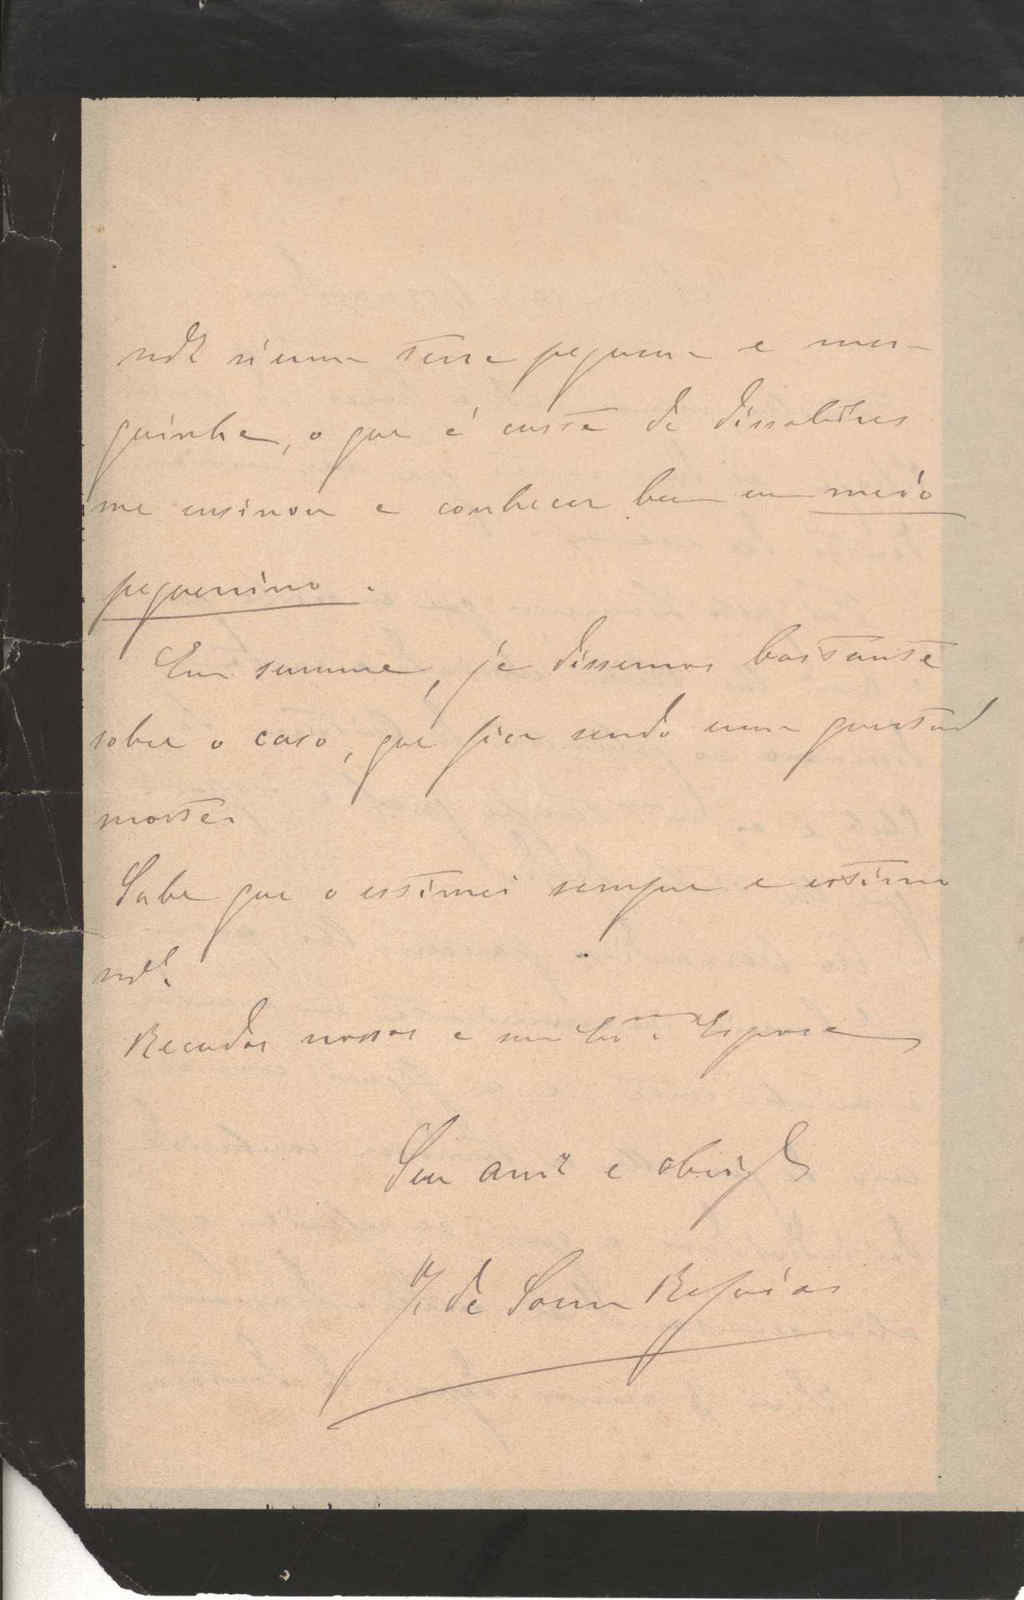 n'uma terra pequena e mes-
quinha, o que á custa de dissabores
me ensinou a conhecer bem um meio
pequenino.
Em summa, já dissemos bastante
sobre o caso, que fica sendo uma questão
morta.
Sabe que o estimei sempre e estimo
Recados nossos a sua Ex.ma Esposa
Seu am.º e obrig.do
J. de Sousa